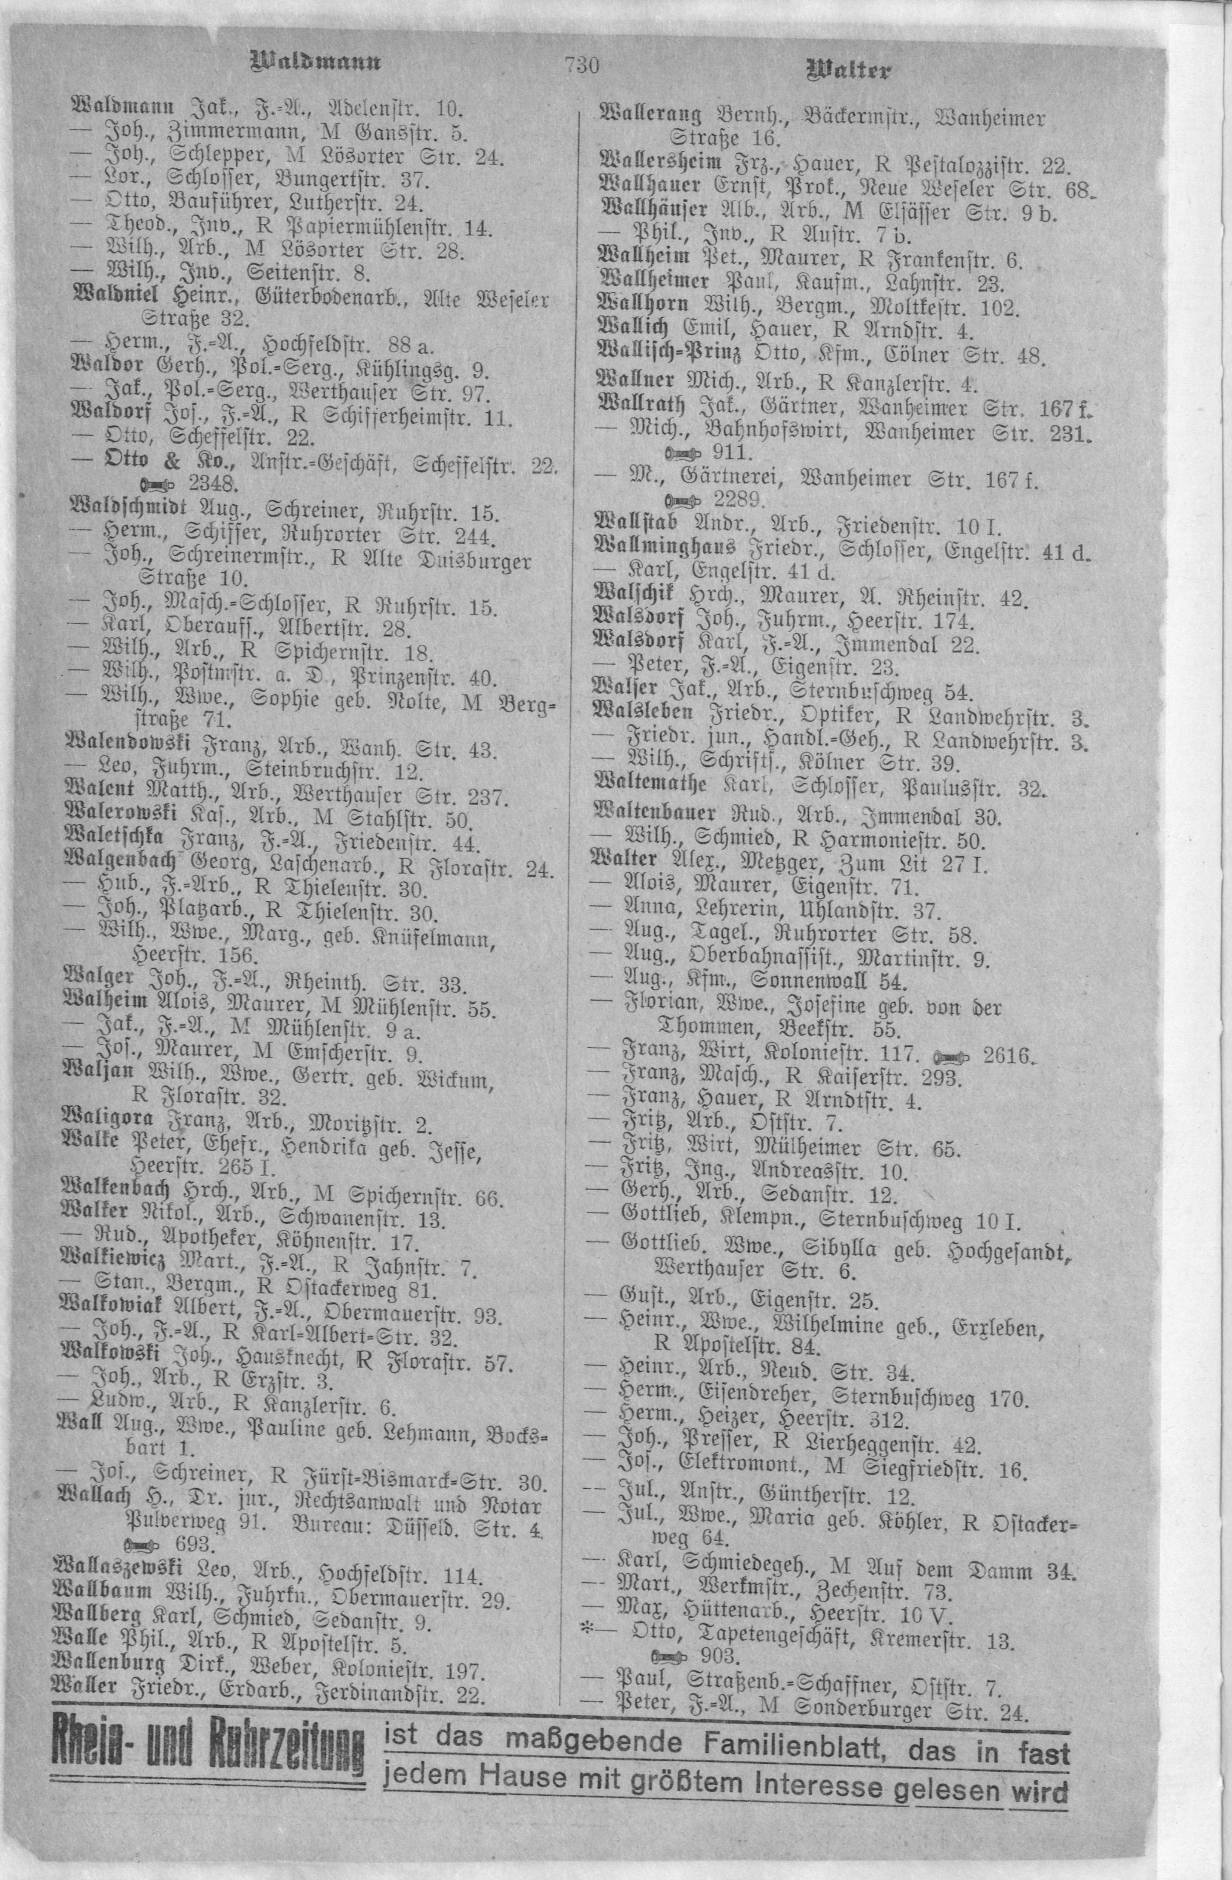 Waldmann 730 Walter
Waldmann Jak., F.-A., Adelenstr. 10.
— Joh., Zimmermann, M Gansstr. 5.
— Joh., Schlepper, M Lösorter Str. 24.
— Lor., Schlosser, Bungertstr. 37.
— Otto, Bauführer, Lutherstr. 24.
— Theod., Inv., R Papiermühlenstr. 14.
— Wilh., Arb., M Lösorter Str. 28.
— Wilh., Inv., Seitenstr. 8.
Waldniel Heinr., Güterbodenarb., Alte Weseler
Straße 32.
— Herm., F.-A., Hochfeldstr. 88 a.
Waldor Gerh., Pol.-Serg., Kühlingsg. 9.
— Jak., Pol.-Serg., Werthauser Str. 97.
Waldorf Jos., F.-A., R Schifferheimstr. 11.
— Otto, Scheffelstr. 22.
— Otto & Ko., Anstr.-Geschäft, Scheffelstr. 22.
2348.
Waldschmidt Aug., Schreiner, Ruhrstr. 15.
— Herm., Schiffer, Ruhrorter Str. 244.
— Joh., Schreinermstr., R Alte Duisburger
Straße 10.
— Joh., Masch.-Schlosser, R Ruhrstr. 15.
— Karl, Oberauff., Albertstr. 28.
— Wilh., Arb., R Spichernstr. 18.
— Wilh., Postmstr. a. D., Prinzenstr. 40.
— Wilh., Wwe., Sophie geb. Nolte, M Berg-
straße 71.
Walendowski Franz, Arb., Wanh. Str. 43.
— Leo, Fuhrm., Steinbruchstr. 12.
Walent Matth., Arb., Werthauser Str. 237.
Walerowski Kas., Arb., M Stahlstr. 50.
Waletschka Franz, F.-A., Friedenstr. 44.
Walgenbach Georg, Laschenarb., R Florastr. 24.
— Hub., F.-Arb., R Thielenstr. 30.
— Joh., Platzarb., R Thielenstr. 30.
— Wilh., Wwe., Marg., geb. Knüfelmann,
Heerstr. 156.
Walger Joh., F.-A., Rheinth. Str. 33.
Walheim Alois, Maurer, M Mühlenstr. 55.
— Jak., F.-A., M Mühlenstr. 9 a.
— Jos., Maurer, M Emscherstr. 9.
Waljan Wilh., Wwe., Gertr. geb. Wickum,
R Florastr. 32.
Waligora Franz, Arb., Moritzstr. 2.
Walke Peter, Ehefr., Hendrika geb. Jesse,
Heerstr. 265 I.
Walkenbach Hrch., Arb., M Spichernstr. 66.
Walker Nikol., Arb., Schwanenstr. 13.
— Rud., Apotheker, Köhnenstr. 17.
Walkiewicz Mart., F.-A., R Jahnstr. 7.
— Stan., Bergm., R Ostackerweg 81.
Walkowiak Albert, F.-A., Obermauerstr. 93.
— Joh., F.-A., R Karl-Albert-Str. 32.
Walkowski Joh., Hausknecht, R Florastr. 57.
— Joh., Arb., R Erzstr. 3.
— Ludw., Arb., R Kanzlerstr. 6.
Wall Aug., Wwe., Pauline geb. Lehmann, Bocks-
bart 1.
— Jos., Schreiner, R Fürst-Bismarck-Str. 30.
Wallach H., Dr. jur., Rechtsanwalt und Notar
Pulverweg 91. Bureau: Düsseld. Str. 4.
693.
Wallaszewski Leo, Arb., Hochfeldstr. 114.
Wallbaum Wilh., Fuhrkn., Obermauerstr. 29.
Wallberg Karl, Schmied, Sedanstr. 9.
Walle Phil., Arb., R Apostelstr. 5.
Wallenburg Dirk., Weber, Koloniestr. 197.
Waller Friedr., Erdarb., Ferdinandstr. 22.
Wallerang Bernh., Bäckermstr., Wanheimer
Straße 16.
Wallersheim Frz., Hauer, R Pestalozzistr. 22.
Wallhauer Ernst, Prok., Neue Weseler Str. 68.
Wallhäuser Alb., Arb., M Elsässer Str. 9 b.
— Phil., Inv., R Austr. 7 b.
Wallheim Pet., Maurer, R Frankenstr. 6.
Wallheimer Paul, Kaufm., Lahnstr. 23.
Wallhorn Wilh., Bergm., Moltkestr. 102.
Wallich Emil, Hauer, R Arndstr. 4.
Wallisch-Prinz Otto, Kfm., Cölner Str. 48.
Wallner Mich., Arb., R Kanzlerstr. 4.
Wallrath Jak., Gärtner, Wanheimer Str. 167 f.
— Mich., Bahnhofswirt, Wanheimer Str. 231.
911.
— M., Gärtnerei, Wanheimer Str. 167 f.
2289.
Wallstab Andr., Arb., Friedenstr. 10 I.
Wallminghaus Friedr., Schlosser, Engelstr. 41 d.
— Karl, Engelstr. 41 d.
Walschik Hrch., Maurer, A. Rheinstr. 42.
Walsdorf Joh., Fuhrm., Heerstr. 174.
Walsdorf Karl, F.-A., Immendal 22.
— Peter, F.-A., Eigenstr. 23.
Walser Jak., Arb., Sternbuschweg 54.
Walsleben Friedr., Optiker, R Landwehrstr. 3.
— Friedr. jun., Handl.-Geh., R Landwehrstr. 3.
— Wilh., Schrifts., Kölner Str. 39.
Waltemathe Karl, Schlosser, Paulusstr. 32.
Waltenbauer Rud., Arb., Immendal 30.
— Wilh., Schmied, R Harmoniestr. 50.
Walter Alex., Metzger, Zum Lit 27 I.
— Alois, Maurer, Eigenstr. 71.
— Anna, Lehrerin, Uhlandstr. 37.
— Aug., Tagel., Ruhrorter Str. 58.
— Aug., Oberbahnassist., Martinstr. 9.
— Aug., Kfm., Sonnenwall 54.
— Florian, Wwe., Josefine geb. von der
Thommen, Beekstr. 55.
— Franz, Wirt, Koloniestr. 117. 2616.
— Franz, Masch., R Kaiserstr. 293.
— Franz, Hauer, R Arndtstr. 4.
— Fritz, Arb., Oststr. 7.
— Fritz, Wirt, Mülheimer Str. 65.
— Fritz, Ing., Andreasstr. 10.
— Gerh., Arb., Sedanstr. 12.
— Gottlieb, Klempn., Sternbuschweg 10 I.
— Gottlieb. Wwe., Sibylla geb. Hochgesandt,
Werthauser Str. 6.
— Gust., Arb., Eigenstr. 25.
— Heinr., Wwe., Wilhelmine geb., Erxleben,
R Apostelstr. 84.
— Heinr., Arb., Neud. Str. 34.
— Herm., Eisendreher, Sternbuschweg 170.
— Herm., Heizer, Heerstr. 312.
— Joh., Presser, R Lierheggenstr. 42.
— Jos., Elektromont., M Siegfriedstr. 16.
— Jul., Anstr., Güntherstr. 12.
— Jul., Wwe., Maria geb. Köhler, R Ostacker-
weg 64.
— Karl, Schmiedegeh., M Auf dem Damm 34.
— Mart., Werkmstr., Zechenstr. 73.
— Max, Hüttenarb., Heerstr. 10 V.
*— Otto, Tapetengeschäft, Kremerstr. 13.
903.
— Paul, Straßenb.-Schaffner, Oststr. 7.
— Peter, F.-A., M Sonderburger Str. 24.
Rhein- und Ruhrzeitung ist das maßgebende Familienblatt, das in fast
jedem Hause mit größtem Interesse gelesen wird